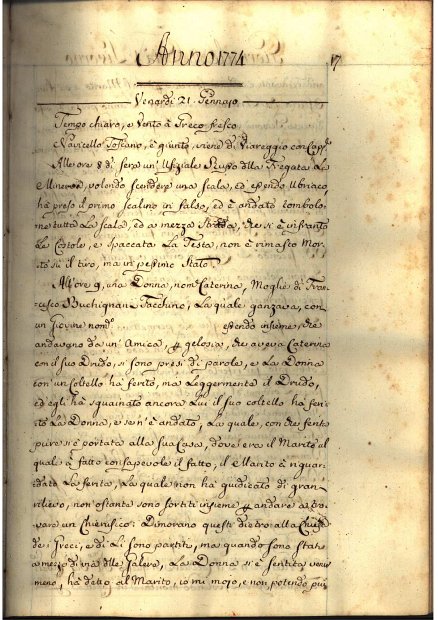 Anno 1774
17
Venardi 21. Gennaro
Tempo chiaro, e Vento à Greco fresco
Navicello Toscano, è giunto, viene di Viareggio con
All'ore 8 di sera un' Ufiziale Russo della Fregata La
Minerva, volendo scendere una scala, ed essendo Ubriaco,
hà preso il primo scalino in falso, ed è andato tombolo-
ne tutta La scala, ed a mezza si è infranto
Le Costole, e spaccata La Testa, non è rimasto Mor-
to sù il tiro, ma in pessimo Stato.
All'ore 9, una Donna nom.ª Caterina, Moglie di Fran-
cesco Buchignani Facchino, La quale ganzava, con
un Giovine nom.º essendo insieme, che
andavano da un' Amica, gelosia, che aveva Caterina
con il suo Drudo, si sono presi di parole, e La Donna
con un Coltello hà ferito, ma Leggermente il Drudo,
ed egli hà sguainato ancora Lui il suo coltello hà feri-
to La Donna, e se n'è andato, La quale, così feri-
ta pure si è portata alla sua Casa, dove era il Marito al
quale à fatto consapevole il fatto, il Marito à riguar-
data La ferita, La quale non hà giudicato di gran
rilievo, non ostante sono sortiti insieme andare a tro-
vare un Chierusico: Dimorano questi dietro alla Chiesa
de Greci, e di Lì sono partiti, ma quando sono stati
a mezzo di via delle Galere, La Donna si è sentita venir
meno, hà detto al Marito, io mi mojo, e non potendo più